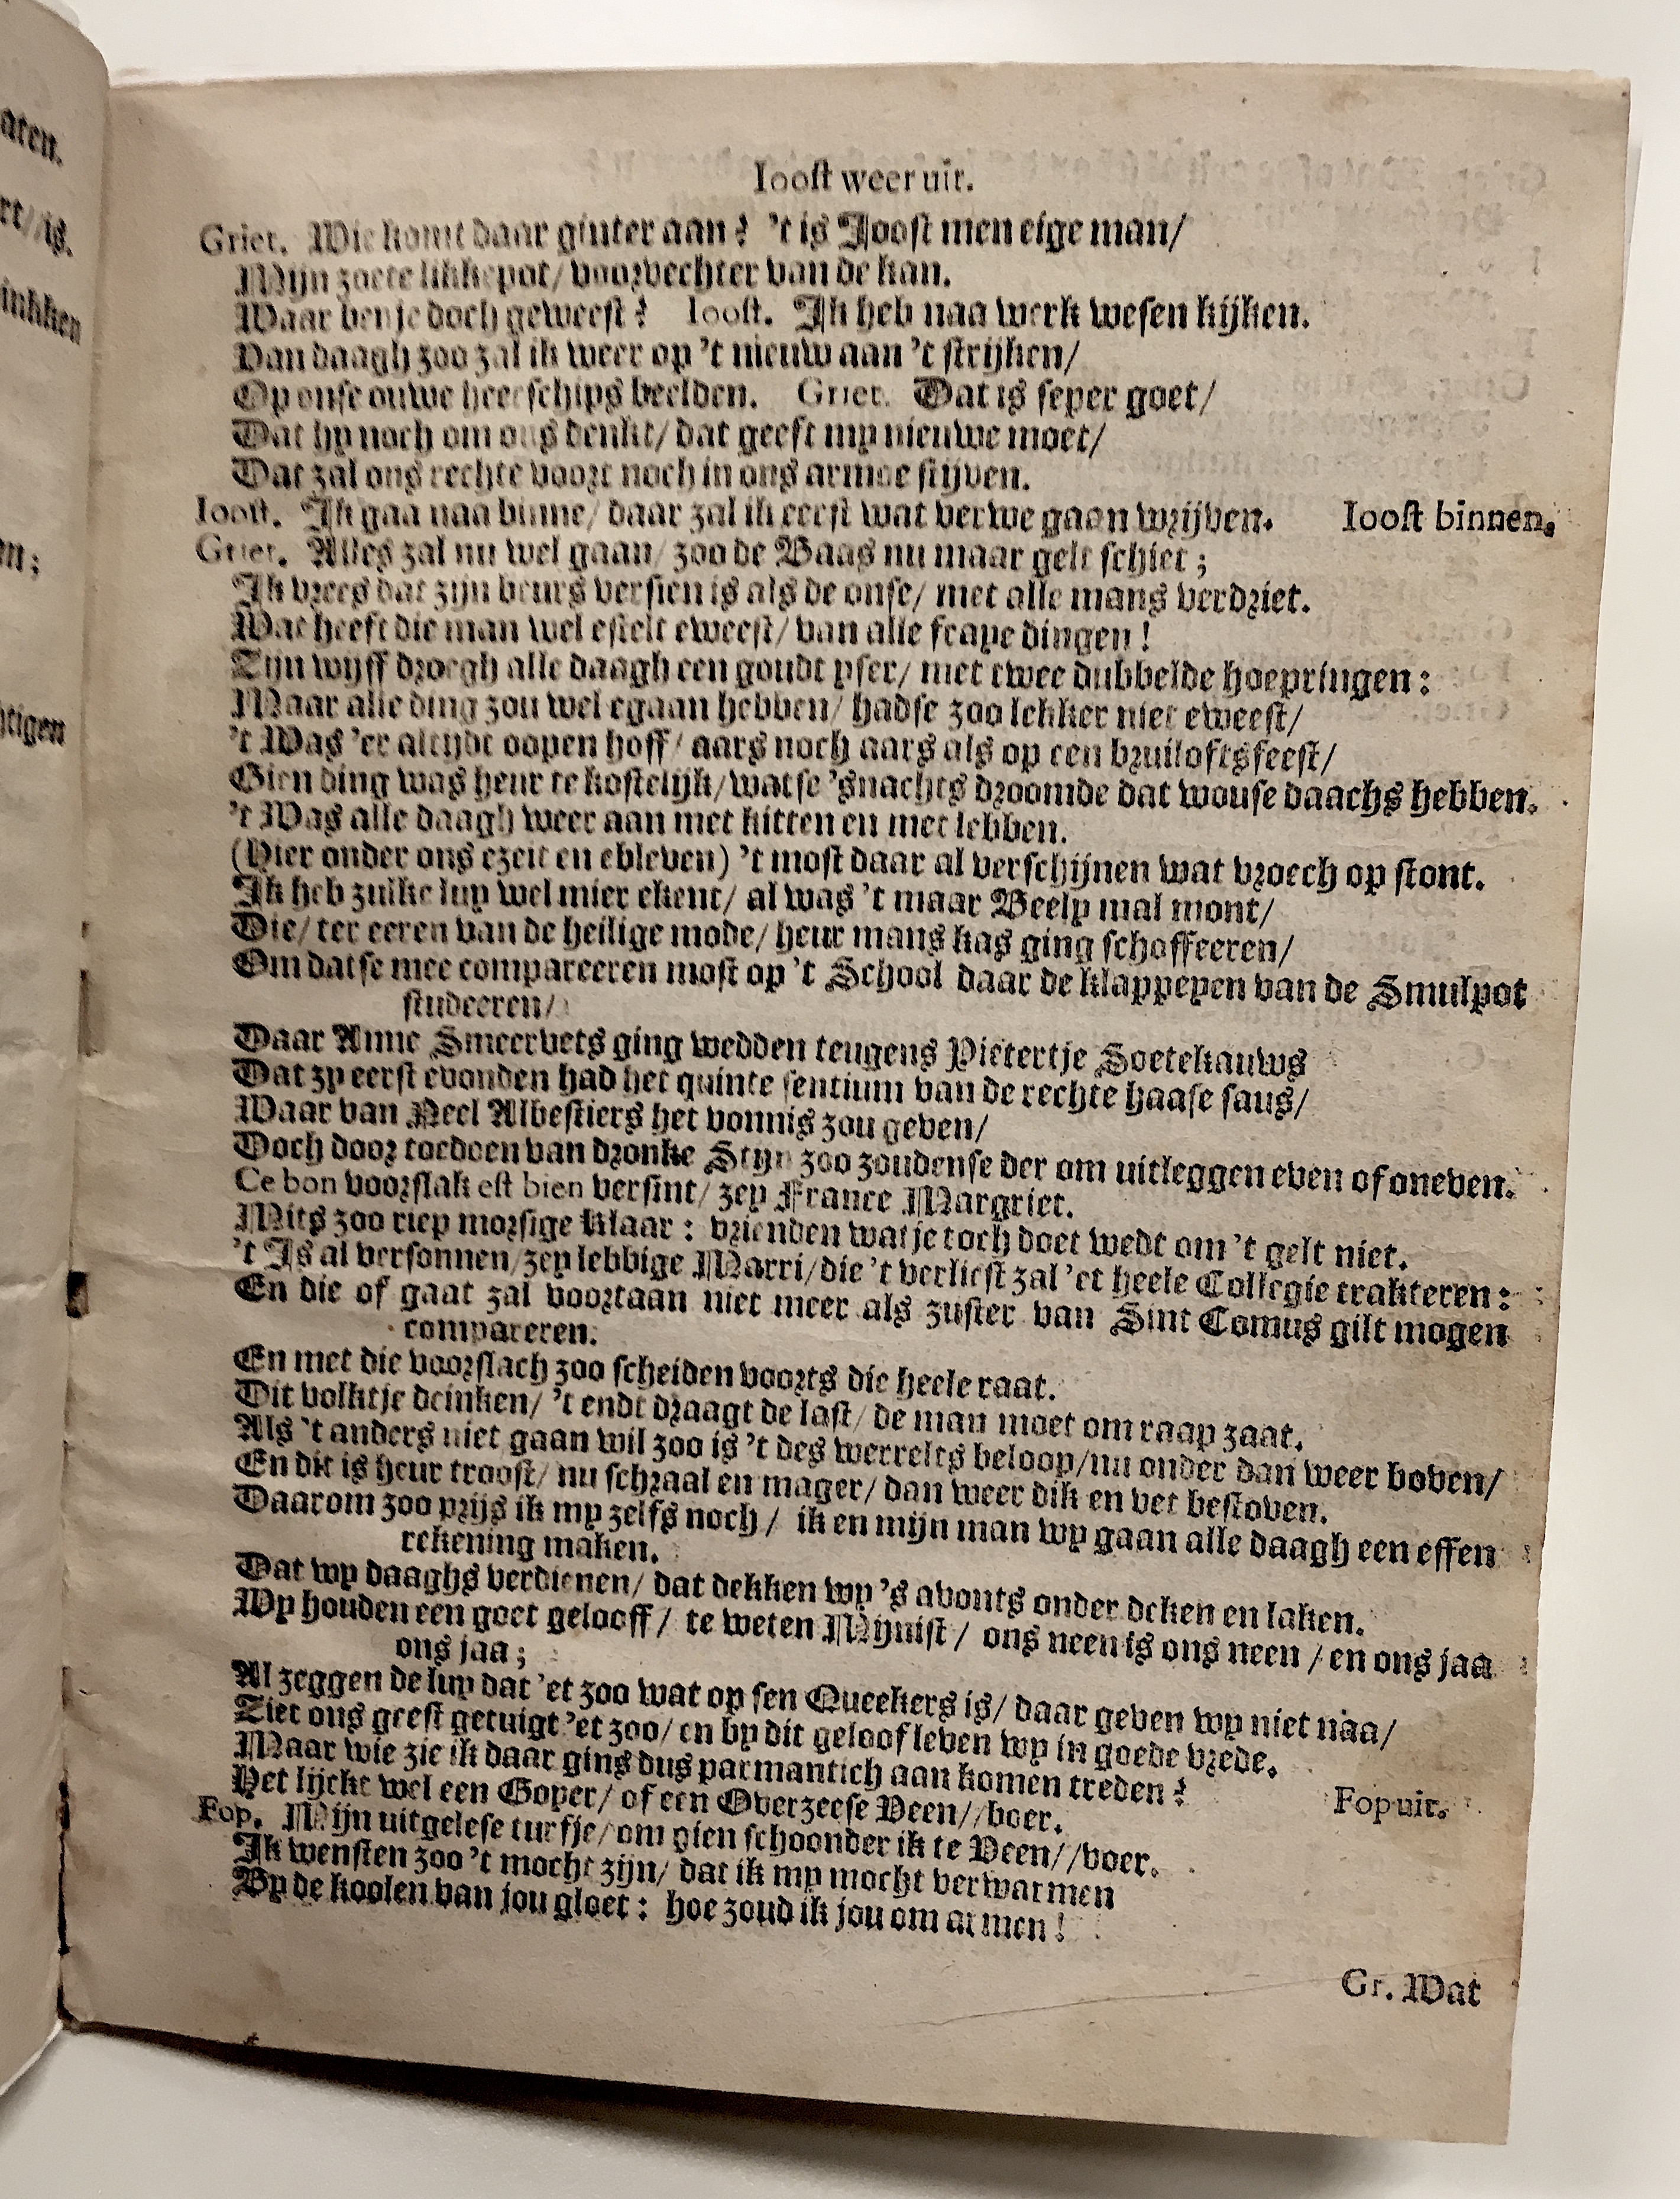 aten.
rt//is.
inkken
en;
htigen
Ioost weer uit.
Griet. Wie komt daar ginter aan? 't is Joost men eige man/
Mijn zoete likkepot/ voorvechter van de kan.
Waar ben je doch geweest? Ioost. Ik heb naa werk wesen kijken.
Van daagh zoo zal ik weer op 't nieuw aan 't strijken/
Op onse ouwe heerschips beelden. Griet. Dat is seper goet/
Dat hy noch om ons denkt/ dat geeft my nieuwe moet/
Dat zal ons rechte voort noch in ons armoe stijven.
Ioost. Ik gaa naa binne/ daar zal ik eerst wat verwe gaan wrijven. Ioost binnen.
Griet. Alles zal nu wel gaan/ zoo de Baas nu maar gelt schiet;
Ik vrees dat zijn beurs versien is als de onse/ met alle mans verdriet.
Wat heeft die man wel estelt eweest/ van alle fraye dingen!
Tijn wyff droegh alle daagh een goudt yser/ met twee dubbelde hoepringen:
Maar alle ding zou wel egaan hebben/ hadse zoo lekker niet eweest/
't Was 'er altydt oopen hoff/ aars noch aars als op een bruiloftsfeest/
Gien ding was heur te kostelijk/ watse 'snachts droomde dat wouse daachs hebben.
't Was alle daagh weer aan met kitten en met lebben.
(Hier onder ons ezeit en ebleven) 't most daar al verschijnen wat vroech op stont.
Ik heb zulke luy wel mier ekent/ al was 't maar Beely mal mont/
Die/ ter eeren van de heilige mode/ heur mans kas ging schoffeeren/
Om datse mee compareeren most op 't School daar de klappeyen van de Smulpot
studeeren/
Daar Anne Smeervets ging wedden teugens Pietertje Soetekauws
Dat zy eerst evonden had het quinte sentium van de rechte haase saus/
Waar van Neel Albestiers het vonnis zou geven/
Doch door toedoen van dronke Styn zoo zoudense der om uitleggen even of oneven.
Ce bon voorslak est bien versint/ zey France Margriet.
Mits zoo riep morsige Klaar: vrienden wat je toch doet wedt om 't gelt niet.
't Is al versonnen/ zey lebbige Marri/ die 't verliest zal 'et heele Collegie trakteren:
En die of gaat zal voortaan niet meer als zuster van Sint Comus gilt mogen
compareren.
En met die voorslach zoo scheiden voorts die heele raat.
Dit volktje drinken/ 't endt draagt de last/ de man moet om raap zaat.
Als 't anders niet gaan wil zoo is 't des werrelts beloop/ nu onder dan weer boven/
En dit is heur troost/ nu schraal en mager/ dan weer dik en vet bestoven.
Daarom zoo prijs ik my zelfs noch/ ik en mijn man wy gaan alle daagh een effen
rekening maken.
Dat wy daaghs verdienen/ dat dekken wy 's avonts onder deken en laken.
Wy houden een goet gelooff/ te weten Mijnist/ ons neen is ons neen/ en ons jaa
ons jaa;
Al zeggen de luy dat 'et zoo wat op sen Queekers is/ daar geven wy niet naa/
Tiet ons geest getuigt 'et zoo/ en by dit geloof leven wy in goede vrede.
Maar wie zie ik daar gins dus parmantich aan komen treden?
Het lijckt wel een Goyer/ of een Overzeese Veen//boer. Fop uit.
Fop. Mijn uitgelese turfje/ om gien schoonder ik te Veen//voer.
Ik wensten zoo 't mocht zijn/ dat ik my mocht verwarmen
By de koolen van jou gloet: hoe zoud ik jou om armen!
Gr. Wat